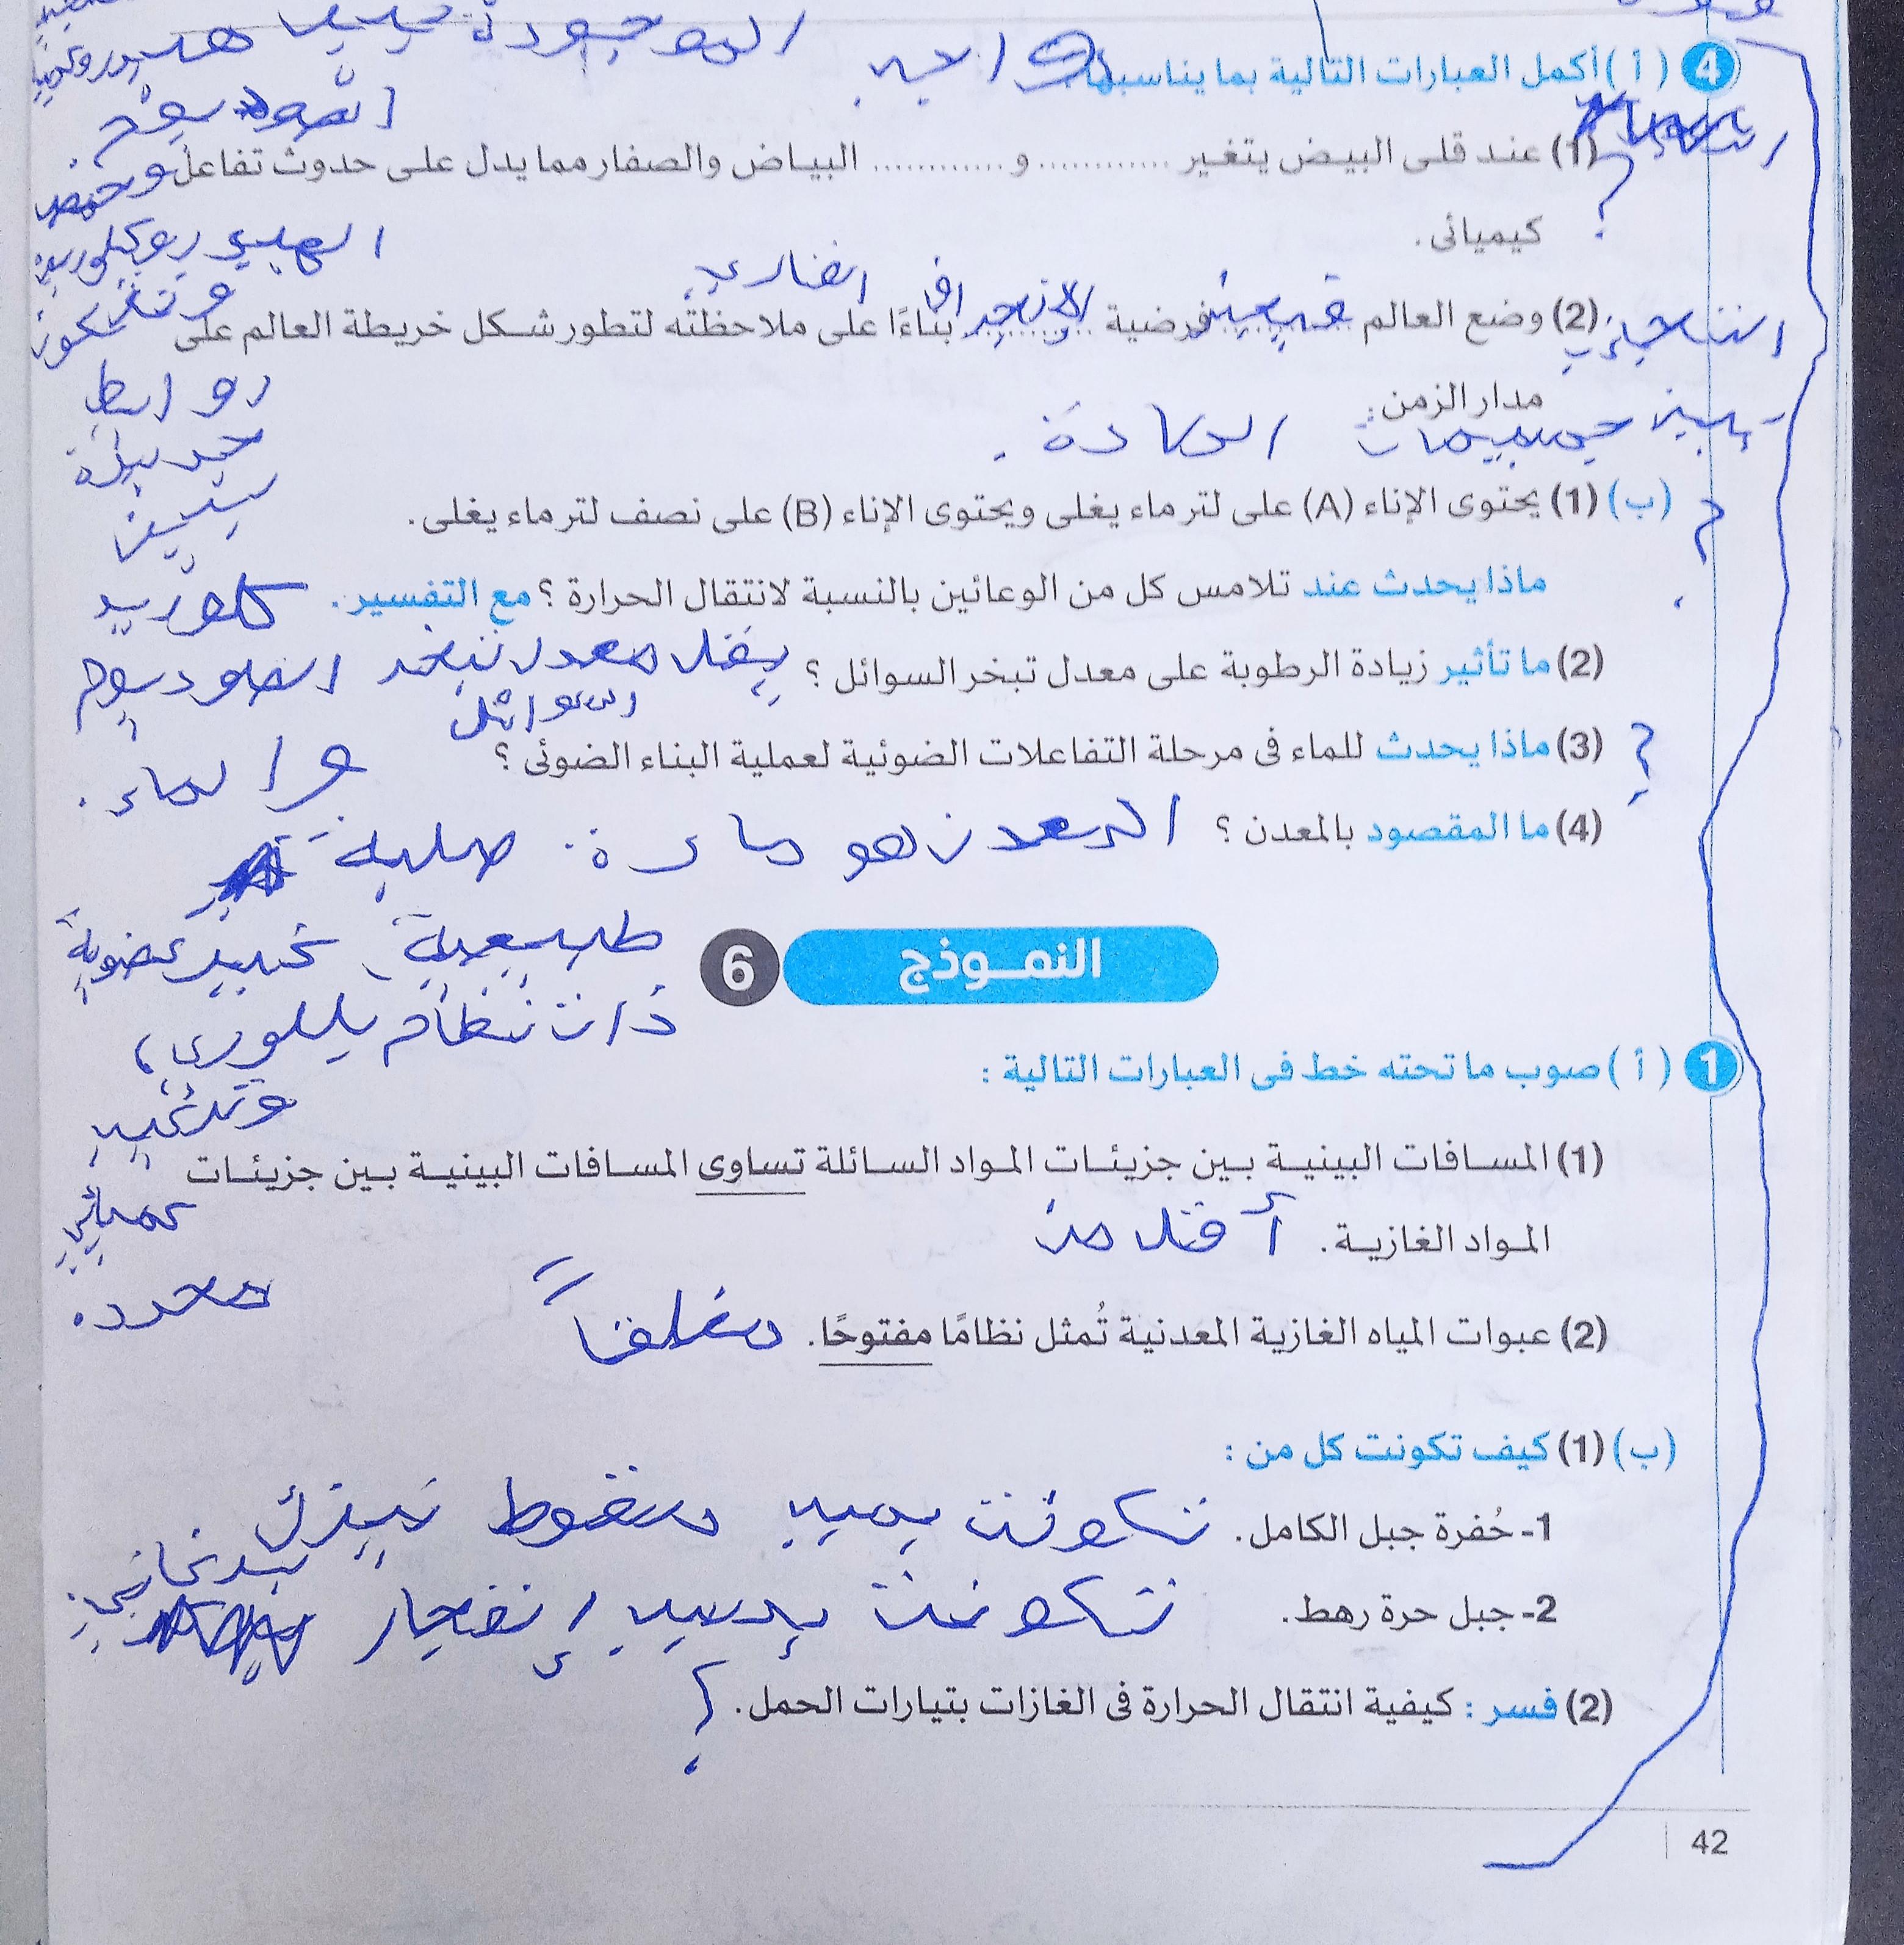 الروابط الموجودة بين هيدروكسيد
الصوديوم
4 ( أ ) أكمل العبارات التالية بما يناسبها
(1) عند قلى البيض يتغير ............ و ............ البياض والصفار مما يدل على حدوث تفاعل
وحمض
كيميائى .
الهيدروكلوريك
(2) وضع العالم ڤيجينر فرضية الانجراف القارى بناءًا على ملاحظته لتطور شكل خريطة العالم على
وتتكون
مدار الزمن :
روابط
جديدة
بين جسيمات المادة .
بين
(ب) (1) يحتوى الإناء (A) على لتر ماء يغلى ويحتوى الإناء (B) على نصف لتر ماء يغلى .
ماذا يحدث عند تلامس كل من الوعائين بالنسبة لانتقال الحرارة ؟ مع التفسير .
كلوريد
(2) ما تأثير زيادة الرطوبة على معدل تبخر السوائل ؟ يقل معدل تبخر السوائل
الصوديوم
(3) ماذا يحدث للماء فى مرحلة التفاعلات الضوئية لعملية البناء الضوئى ؟
والماء .
(4) ما المقصود بالمعدن ؟ المعدن هو مادة صلبة
طبيعية غير عضوية
النموذج 6
ذات نظام بللورى ،
1 ( أ ) صوب ما تحته خط فى العبارات التالية :
وتركيب
(1) المسافات البينية بين جزيئات المواد السائلة تساوى المسافات البينية بين جزيئات
كميائى
المواد الغازية . أقل من
محدد .
(2) عبوات المياه الغازية المعدنية تُمثل نظامًا مفتوحًا . مغلقاً
(ب) (1) كيف تكونت كل من :
1- حُفرة جبل الكامل . تكونت بسبب سقوط نيزك
2- جبل حرة رهط . تكونت بسبب إنفجار بركانى
(2) فسر : كيفية انتقال الحرارة فى الغازات بتيارات الحمل . ؟
42